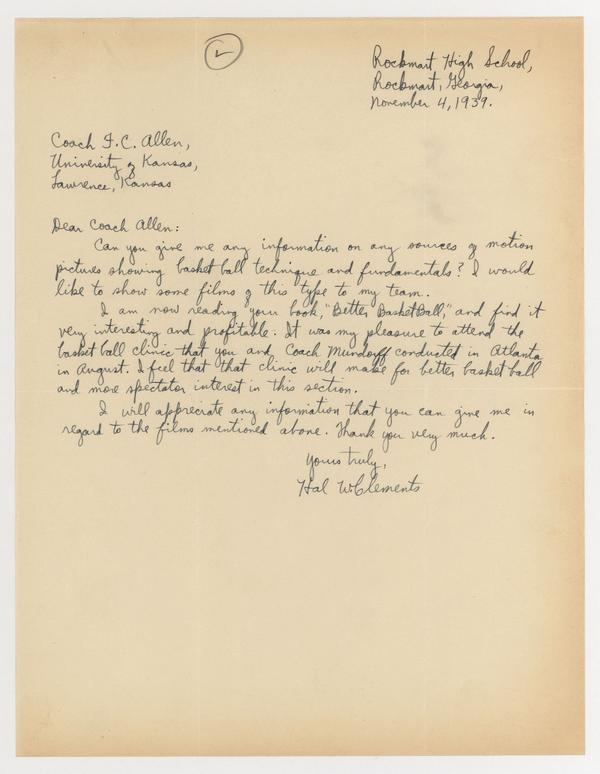 Rockmart High School,
Rockmart, Georgia,
November 4, 1939.
Coach F.C. Allen,
University of Kansas,
Lawrence, Kansas
Dear Coach Allen:
Can you give me any information on any sources of motion
pictures showing basket ball technique and fundamentals? I would
like to show some films of this type to my team.
I am now reading your book, "Better BasketBall," and find it
very interesting and profitable. It was my pleasure to attend the
basket ball clinic that you and Coach Mundorff conducted in Atlanta
in August. I feel that that clinic will make for better basket ball
and more spectator interest in this section.
I will appreciate any information that you can give me in
regard to the films mentioned above. Thank you very much.
Yours truly,
Hal W. Clements